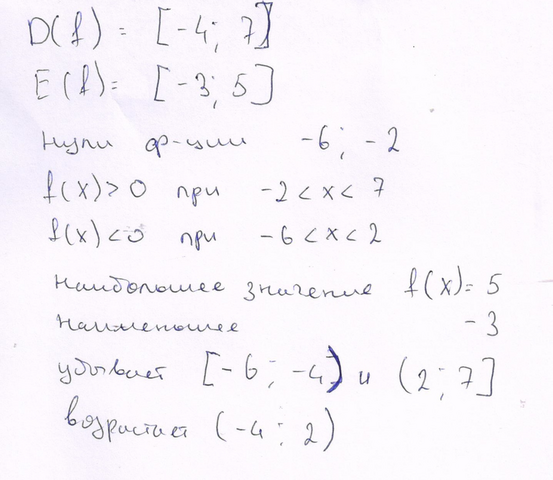 D(f) = [-4; 7]
E(f)= [-3; 5]
Нули ф-ции -6; -2
f(x)>0 при -2<x<7
f(x)<0 при -6<x<2
наибольшее значение f(x)=5
наименьшее -3
убывает [-6; -4) и (2; 7]
возрастает (-4; 2)